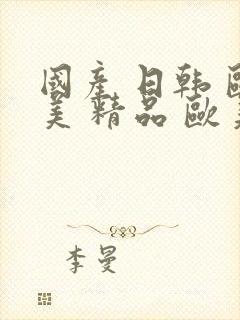 國產日韩歐
美精品歐美
李曼